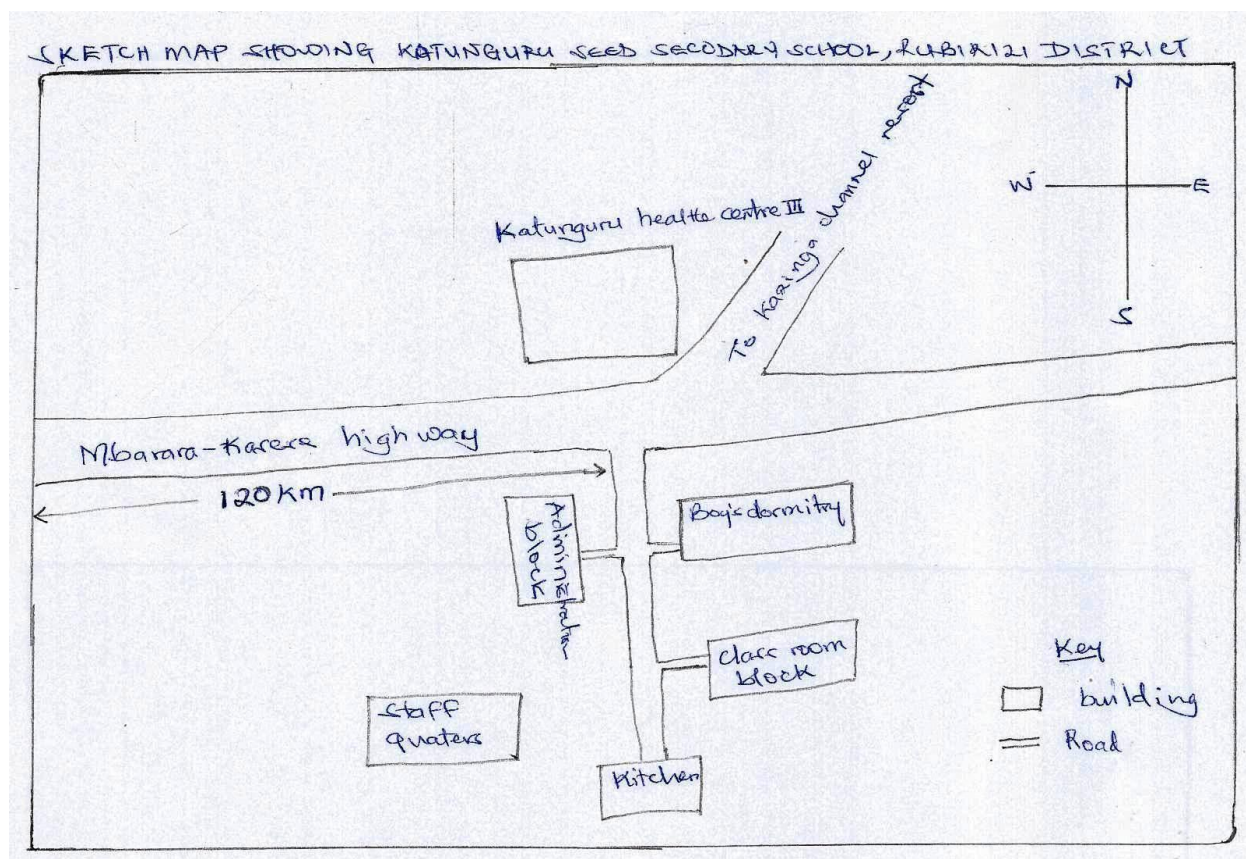 SKETCH MAP SHOWING KATUNGURU SEED SECODARY SCHOOL, RUBIRIZI DISTRICT
N
W
E
S
Katunguru health centre III
To Kazinga channel
Mbarara-
high way
120 Km
Administration
block
Boy's dormitry
Class room
block
Staff
quaters
Kitchen
Key
building
Road